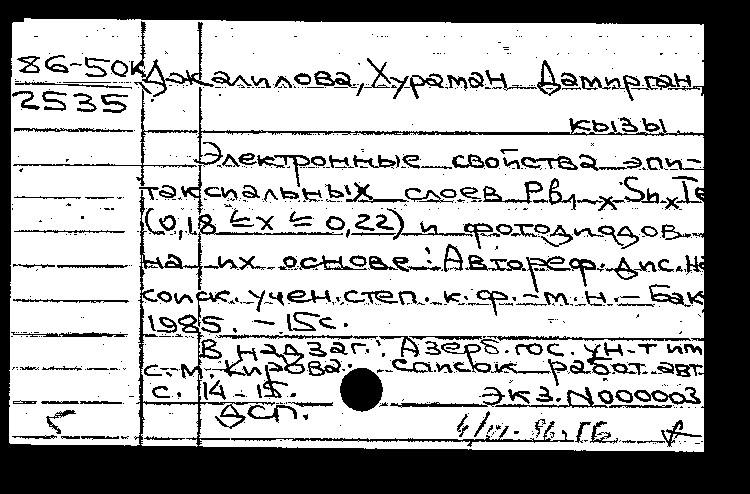 86-50к Джалилова, Хураман Дамирган
2535
кызы
Электронные свойства эпи-
таксиальных слоев Pb1-xSnxTe
(0,18 ≤ x ≤ 0,22) и фотодиодов
на их основе: Автореф. дис. на
соиск. учен. степ. к. ф.-м. н. - Бак
1985. - 15 с.
В надзаг.: Азерб. гос. ун-т им
С. М. Кирова. Список работ авт
с. 14-15. Экз. N000003
ДСП.
5